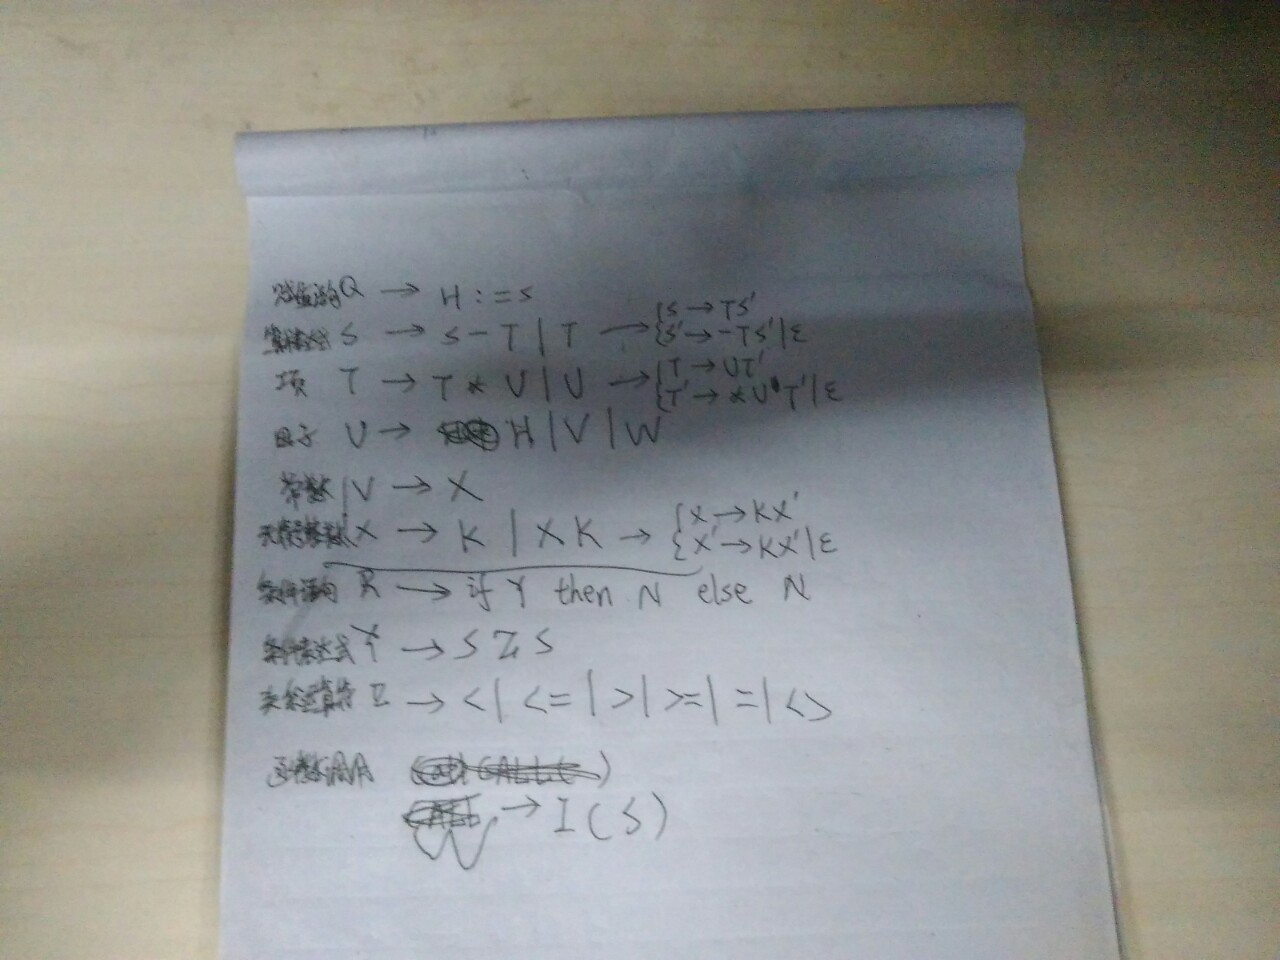 赋值语句 Q → H := S
算术表达式 S → S - T | T → { S → TS'
S' → -TS' | ε
项 T → T * U | U → { T → UT'
T' → *UT' | ε
因子 U → H | V | W
常数 V → X
无符号整数 X → K | XK → { X → KX'
X' → KX' | ε
条件语句 R → if Y then N else N
条件表达式 Y → S Z S
关系运算符 Z → < | <= | > | >= | = | <>
函数调用
W → I(S)